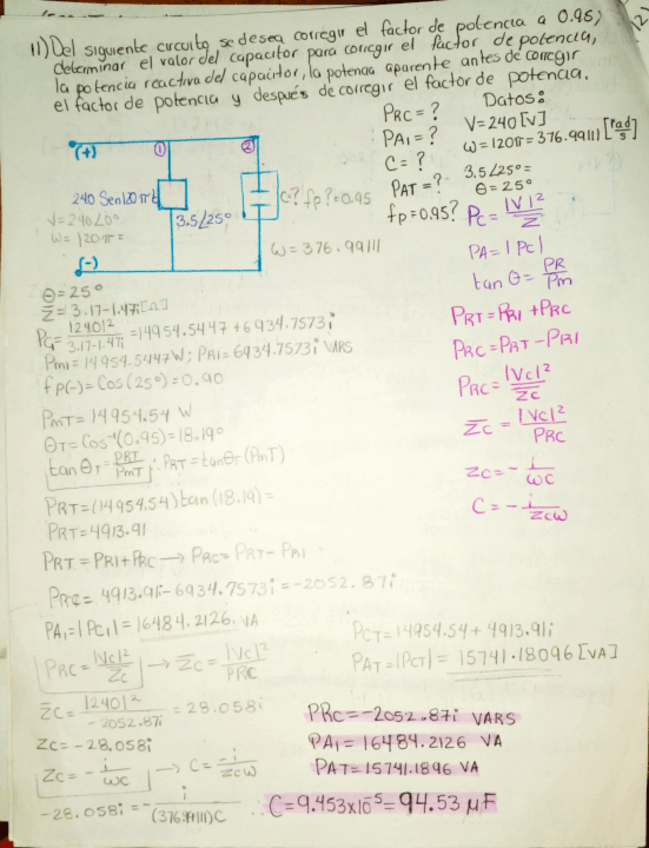 11) Del siguiente circuito se desea corregir el factor de potencia a 0.95;
determinar el valor del capacitor para corregir el factor de potencia,
la potencia reactiva del capacitor, la potencia aparente antes de corregir
el factor de potencia y después de corregir el factor de potencia.
PRC = ?
PA1 = ?
C = ?
PAT = ?
fp = 0.95?
Datos:
V = 240 [V]
ω = 120π = 376.99111 [rad/s]
3.5∠25° =
θ = 25°
PC = |V|²/Z̄
PA = |PC|
tan θ = PR/Pm
PRT = PR1 + PRC
PRC = PRT - PR1
PRC = |Vc|²/Z̄c
Z̄c = |Vc|²/PRC
Zc = - i/ωC
C = - i/Zcω
(+)
①
②
240 Sen120πt
V = 240∠0°
ω = 120π =
3.5∠25°
C? fp? = 0.95
ω = 376.99111
(-)
θ = 25°
Z̄ = 3.17-1.47i [Ω]
PC1 = |240|²/3.17-1.47i = 14954.5447 + 6934.7573i
Pm1 = 14954.5447W; PR1 = 6934.7573i VARS
fp(-) = Cos(25°) = 0.90
PmT = 14954.54 W
θT = Cos⁻¹(0.95) = 18.19°
tan θT = PRT/PmT ∴ PRT = tanθT (PmT)
PRT = (14954.54) tan(18.19) =
PRT = 4913.91
PRT = PR1 + PRC → PRC = PRT - PR1
PRC = 4913.91i - 6934.7573i = -2052.87i
PA1 = |PC1| = 16484.2126 VA
PCT = 14954.54 + 4913.91i
PAT = |PCT| = 15741.18096 [VA]
PRC = |Vc|²/Z̄c → Z̄c = |Vc|²/PRC
Z̄c = |240|²/-2052.87i = 28.058i
Zc = -28.058i
Zc = - i/ωC → C = -i/Zcω
-28.058i = - i/(376.99111)C
PRC = -2052.87i VARS
PA1 = 16484.2126 VA
PAT = 15741.1896 VA
∴ C = 9.453x10⁻⁵ = 94.53 μF